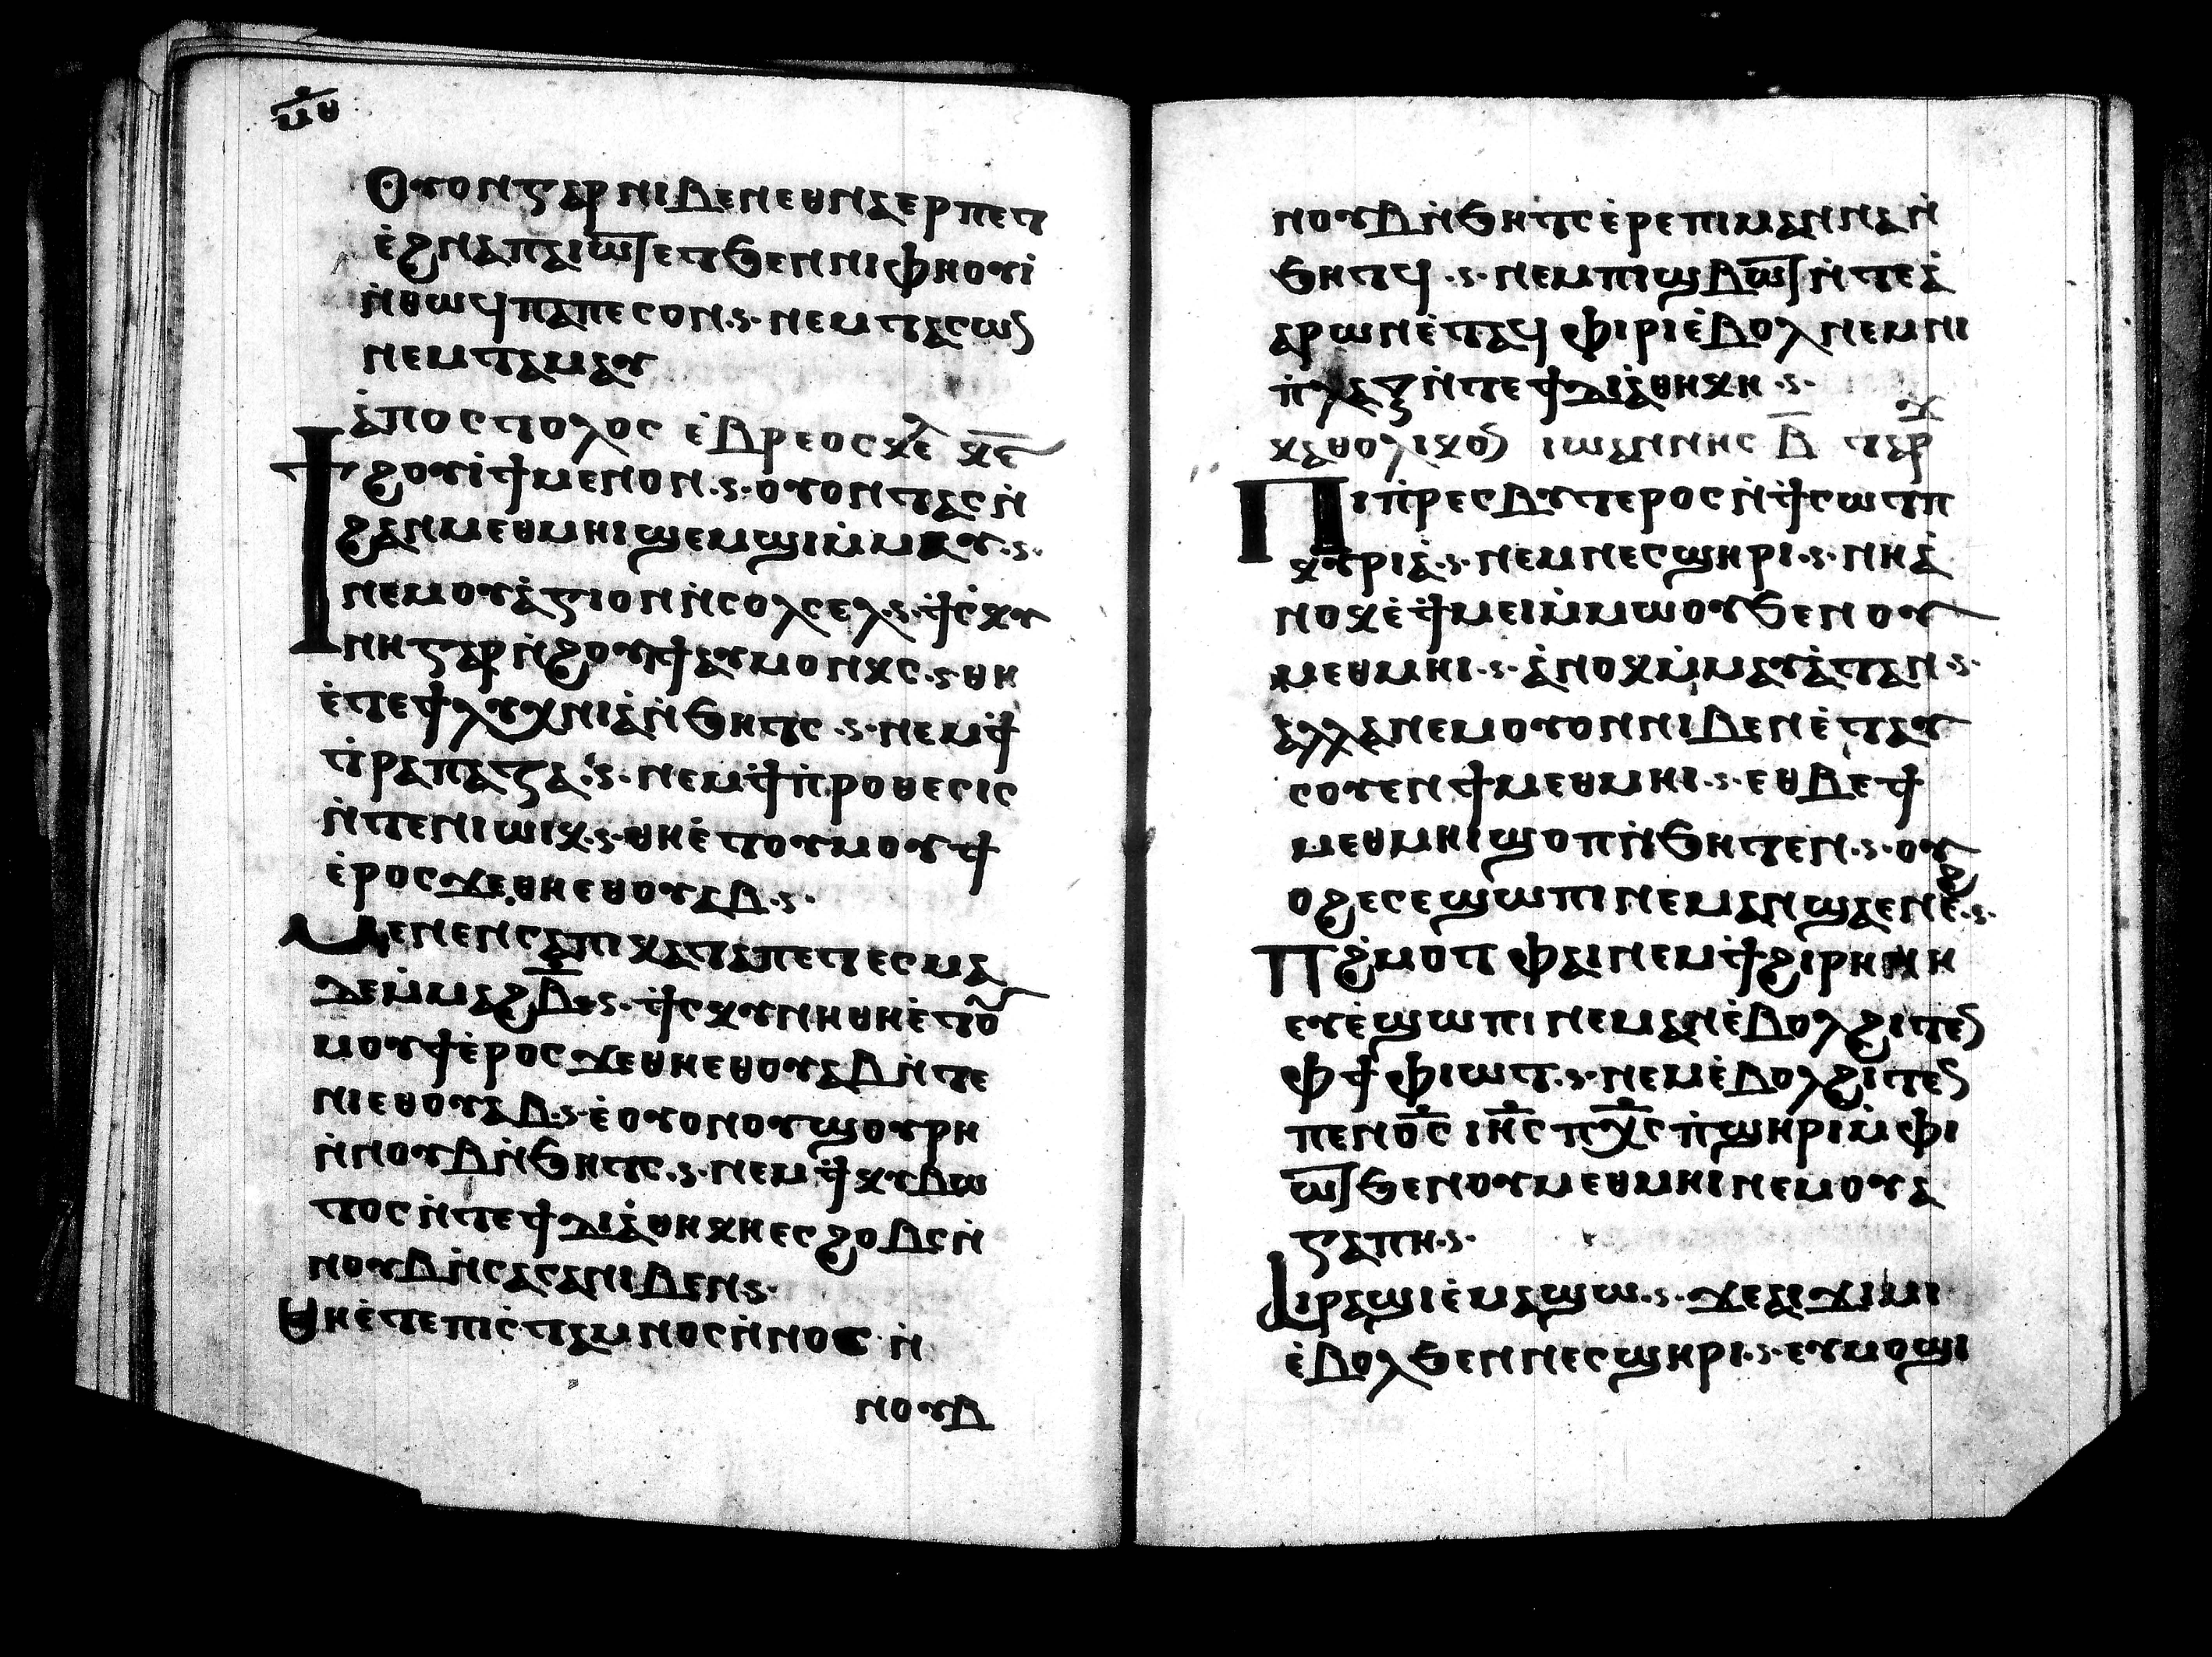 ⲙ̅ⲑ
Ⲟⲩⲟⲛ ⲅⲁⲣ ⲛⲓⲃⲉⲛ ⲉⲑⲛⲁⲉⲣ ⲡⲉⲧ
ⲉ̇ϩⲛⲁ ⲡⲁⲓⲱⲧ ⲉⲧϧⲉⲛ ⲛⲓⲫⲏⲟⲩⲓ̇
ⲛ̇ⲑⲱϥ ⲡⲁ ⲡⲉ ⲥⲟⲛ ·ⲋ· ⲛⲉⲙ ⲧⲁⲥⲱⲛ
ⲛⲉⲙ ⲧⲁⲙⲁⲩ
ⲁ̇ⲡⲟⲥⲧⲟⲗⲟⲥ ⲉ̇ⲃⲣⲉⲟⲥ ⲕⲉⲗ ⲕ̅ⲉ̅
Ϯϩⲟⲩⲓ̇ϯ ⲙⲉⲛ ⲟⲛ ·ⲋ· ⲟⲩⲟⲛⲧⲁⲥ ⲛ̇
ϩⲁⲛⲙⲉⲑⲙⲏⲓ ϣⲉⲙϣⲓ ⲙ̇ⲙⲁⲩ ·ⲋ·
ⲛⲉⲙ ⲟⲩⲁ̇ⲅⲓⲟⲛ ⲛ̇ⲥⲟⲗⲥⲉⲗ ·ⲋ· ϯ̇ⲥ̇ⲕⲩ
ⲛⲏ ⲅⲁⲣ ⲛ̇ϩⲟⲩⲓϯ ⲁⲩⲙⲟⲛⲕⲥ ·ⲋ· ⲑⲏ
ⲉ̇ⲧⲉ ϯⲗⲩⲭⲛⲓⲁ̇ ⲛ̇ϧⲏⲧⲥ ·ⲋ· ⲛⲉⲙ ϯ̇
ⲧ̇ⲣⲁⲡⲁⲍⲁ ·ⲋ· ⲛⲉⲙ ϯ̇ⲡ̇ⲣⲟⲑⲉⲥⲓⲥ
ⲛ̇ⲧⲉ ⲛⲓⲱⲓⲕ ·ⲋ· ⲑⲏ ⲉ̇ⲧⲟⲩⲙⲟⲩϯ
ⲉ̇ⲣⲟⲥ ϫⲉ ⲑⲏⲉⲑⲟⲩⲁⲃ ·ⲋ·
Ⲙⲉⲛⲉⲛⲥⲁ ⲡⲓⲕⲁⲧⲁⲡⲉⲧⲉⲥⲙⲁ
ϫⲉ ⲙ̇ⲙⲁϩⲃ̅ ·ⲋ· ϯ̇ⲥⲕⲩⲛⲏ ⲑⲏ ⲉ̇ⲧⲟⲩ
ⲙⲟⲩϯ ⲉ̇ⲣⲟⲥ ϫⲉ ⲑⲏⲉⲑⲟⲩⲁⲃ ⲛ̇ⲧⲉ
ⲛⲓⲉⲑⲟⲩⲁⲃ ·ⲋ· ⲉ̇ⲟⲩⲟⲛ ⲟⲩϣⲟⲩⲣⲏ
ⲛ̇ⲛⲟⲩⲃ ⲛ̇ϧⲏⲧⲥ ·ⲋ· ⲛⲉⲙ ϯ̇ⲕⲩⲃⲱ
ⲧⲟⲥ ⲛ̇ⲧⲉ ϯⲇⲓⲁ̇ⲑⲏⲕⲏ ⲉⲥϩⲟⲃⲥ ⲛ̇
ⲛⲟⲩⲃ ⲛ̇ⲥⲁⲥⲁ ⲛⲓⲃⲉⲛ ⲋ·
Ⲑⲏ ⲉ̇ⲧⲉ ⲡⲓⲥ̇ⲧⲁⲙⲛⲟⲥ ⲛ̇ⲛⲟⲥ ⲛ̇
ⲛⲟⲩⲃ
ⲛⲟⲩⲃ ⲛ̇ϧⲏⲧⲥ ⲉ̇ⲣⲉ ⲡⲓⲙⲁⲛⲛⲁ ⲛ̇
ϧⲏⲧϥ ·ⲋ· ⲛⲉⲙ ⲡⲓϣⲃⲱⲧ ⲛ̇ⲧⲉ ⲁ̇
ⲁⲣⲱⲛ ⲉ̇ⲧⲁϥⲫⲓⲣⲓ ⲉ̇ⲃⲟⲗ ⲛⲉⲙ ⲛⲓ
ⲡ̇ⲗⲁⲝ ⲛ̇ⲧⲉ ϯⲇⲓⲁ̇ⲑⲏⲕⲏ ·ⲋ·
ⲕⲁⲑⲟⲗⲓⲕⲟⲛ ⲓⲱⲁⲛⲛⲏⲥ ⲃ̅ ⲧⲁⲣⲭ
Ⲡⲓⲡ̇ⲣⲉⲥⲃⲩⲧⲉⲣⲟⲥ ⲛ̇ϯ̇ⲥⲱⲧⲡ
ⲕⲩⲣⲓⲁ̇ ·ⲋ· ⲛⲉⲙ ⲛⲉⲥϣⲏⲣⲓ ·ⲋ· ⲛⲏ ⲁ̇
ⲛⲟⲕ ⲉ̇ϯ̇ⲙⲉⲓ ⲙ̇ⲙⲱⲟⲩ ϧⲉⲛ ⲟⲩ
ⲙⲉⲑⲙⲏⲓ ·ⲋ· ⲁ̇ⲛⲟⲕ ⲙ̇ⲙⲁⲩⲁ̇ⲧ ⲁⲛ ·ⲋ·
ⲁⲗⲗⲁ ⲛⲉⲙ ⲟⲩⲟⲛ ⲛⲓⲃⲉⲛ ⲉ̇ⲧⲁⲩ
ⲥⲟⲩⲉⲛ ϯⲙⲉⲑⲙⲏⲓ ·ⲋ· ⲉⲑⲃⲉ ϯ
ⲙⲉⲑⲙⲏⲓ ϣⲟⲡ ⲛ̇ϧⲏⲧⲉⲛ ·ⲋ· ⲟⲩ
ⲟϩ ⲉⲥⲉϣⲱⲡⲓ ⲛⲉⲙⲁⲛ ϣⲁ ⲉⲛⲉ̇ϩ ·ⲋ·
Ⲡϩ̇ⲙⲟⲧ ⲫⲁⲓ ⲛⲉⲙ ϯ̇ϩⲓⲣⲏⲛⲏ
ⲉⲩⲉ̇ϣⲱⲡⲓ ⲛⲉⲙⲁⲛ ⲉ̇ⲃⲟⲗ ϩⲓⲧⲉⲛ
ⲫϯ ⲫⲓⲱⲧ ·ⲋ· ⲛⲉⲙ ⲉ̇ⲃⲟⲗ ϩⲓⲧⲉⲛ
ⲡⲉⲛⲟ̅ⲥ ⲓⲏ̅ⲥ ⲡⲭ̅ⲥ ⲡ̇ϣⲏⲣⲓ ⲙ̇ⲫⲓ
ⲱⲧ ϧⲉⲛ ⲟⲩⲙⲉⲑⲙⲏⲓ ⲛⲉⲙ ⲟⲩⲁ
ⲅⲁⲡⲏ ·ⲋ·
Ⲁⲓⲣⲁϣⲓ ⲉ̇ⲙⲁϣⲱ ·ⲋ· ϫⲉ ⲁⲓϫⲓⲙⲓ
ⲉ̇ⲃⲟⲗ ϧⲉⲛ ⲛⲉⲥϣⲏⲣⲓ ·ⲋ· ⲉⲩⲙⲟϣⲓ